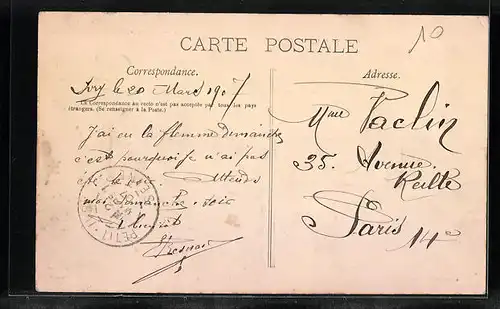 10
CARTE POSTALE
Correspondance.
Ivry le 20 Mars 1907
La Correspondance au recto n'est pas acceptée par tous les pays
étrangers. (Se renseigner à la Poste.)
J'ai eu la flemme dimanche
c'est pourquoi je n'ai pas
été Attends
moi Dimanche soir
PETIT-IVRY
Adresse.
Mme Paclin
35. Avenue
Reille
Paris
14e